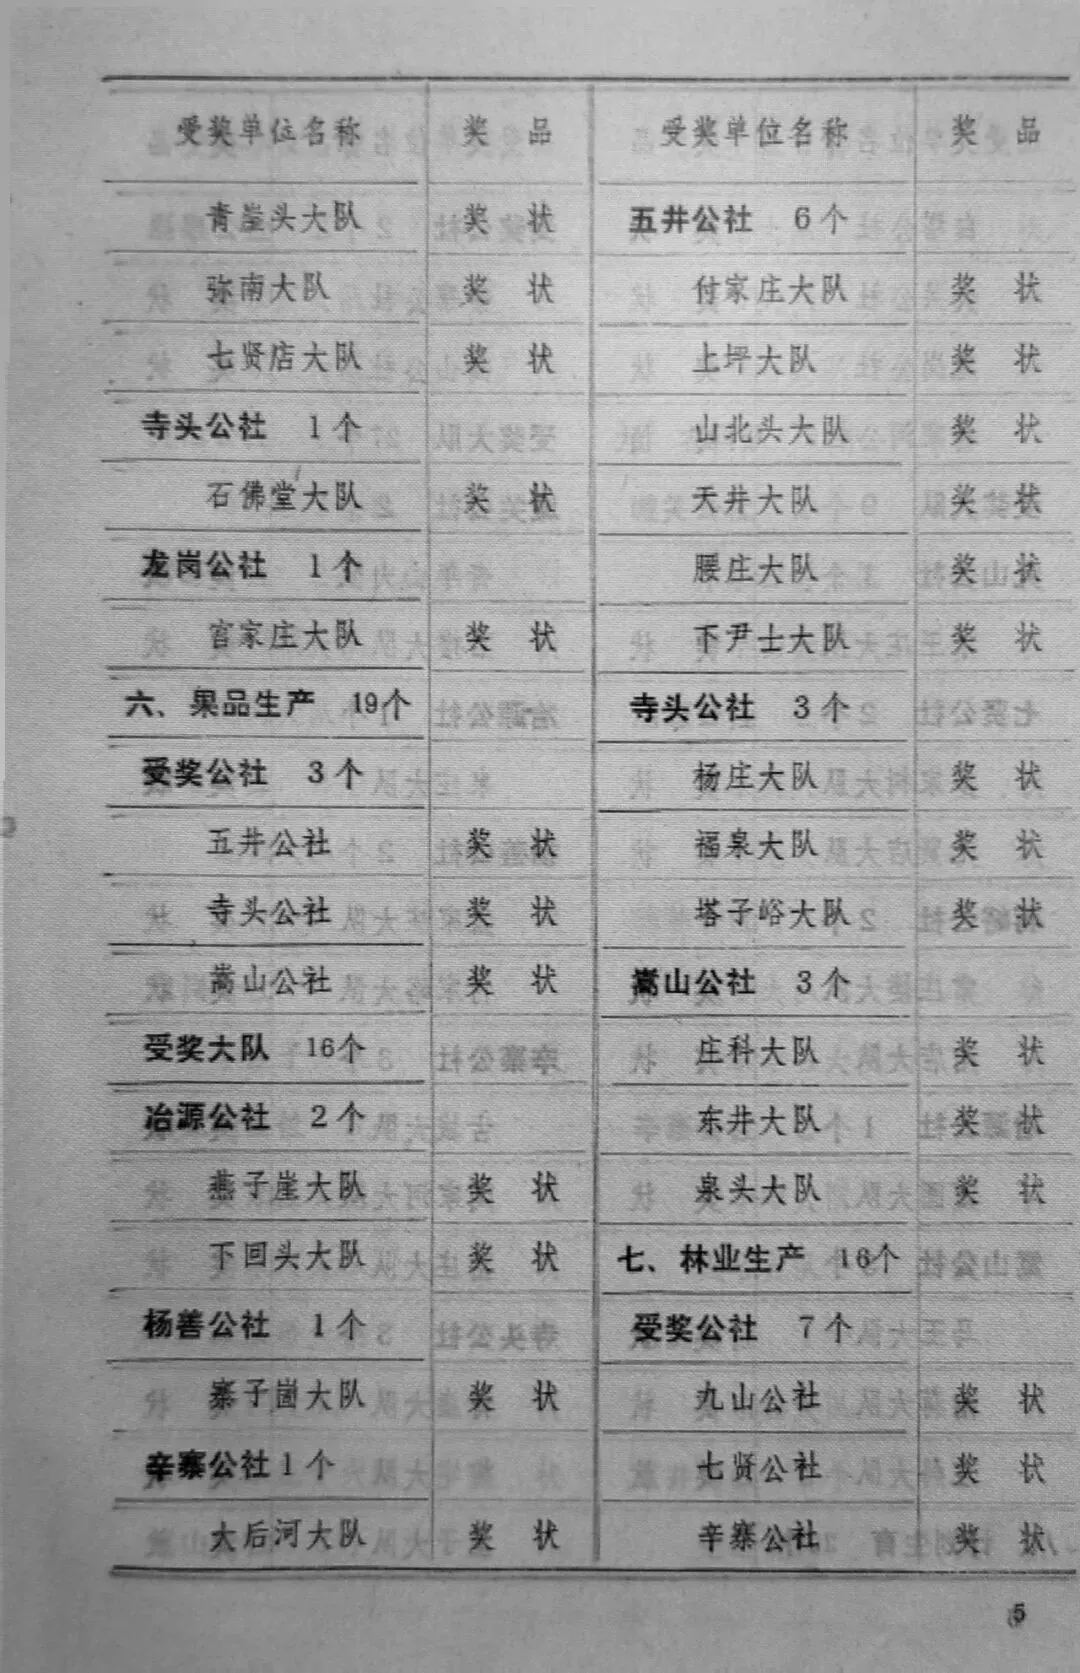 受奖单位名称 奖 品
青崖头大队 奖 状
弥南大队 奖 状
七贤店大队 奖 状
寺头公社 1个
石佛堂大队 奖 状
龙岗公社 1个
官家庄大队 奖 状
六、果品生产 19个
受奖公社 3个
五井公社 奖 状
寺头公社 奖 状
嵩山公社 奖 状
受奖大队 16个
冶源公社 2个
燕子崖大队 奖 状
下回头大队 奖 状
杨善公社 1个
寨子崮大队 奖 状
辛寨公社 1个
大后河大队 奖 状
受奖单位名称 奖 品
五井公社 6个
付家庄大队 奖 状
上坪大队 奖 状
山北头大队 奖 状
天井大队 奖 状
腰庄大队 奖 状
下尹士大队 奖 状
寺头公社 3个
杨庄大队 奖 状
福泉大队 奖 状
塔子峪大队 奖 状
嵩山公社 3个
庄科大队 奖 状
东井大队 奖 状
泉头大队 奖 状
七、林业生产 16个
受奖公社 7个
九山公社 奖 状
七贤公社 奖 状
辛寨公社 奖 状
5